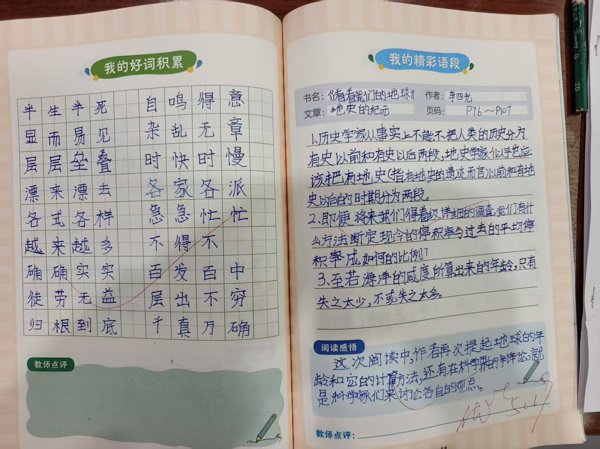 我的好词积累
半生半死 自鸣得意
显而易见 杂乱无章
层层垒叠 时快时慢
漂来漂去 各家各派
各式各样 急急忙忙
越来越多 不得不
确确实实 百发百中
徒劳无益 层出不穷
归根到底 千真万确
教师点评
我的精彩语段
书名:《看看我们的地球》 作者:李四光
文章:地史的纪元 页码:P76~P107
1.历史学家从事实上不敢不把人类的历史分为
有史以前和有史以后两段,地史学家似乎也应
该把有地史(指有地史的遗迹而言)以前和有地
史以后的时期分为两段。
2.即便将来我们得着极详细的调查,我们有什
么方法断定现今的停积率与过去的平均停
积率成如何的比例?
3.至若海洋的咸度所算出来的年龄,只有
失之太少,不或失之太多。
阅读感悟
这次阅读中,作者再次提起地球的年
龄和它的计算方法,还有在科学界的争论,就
是科学家们来讨论各自的观点。
优
5.17
教师点评: